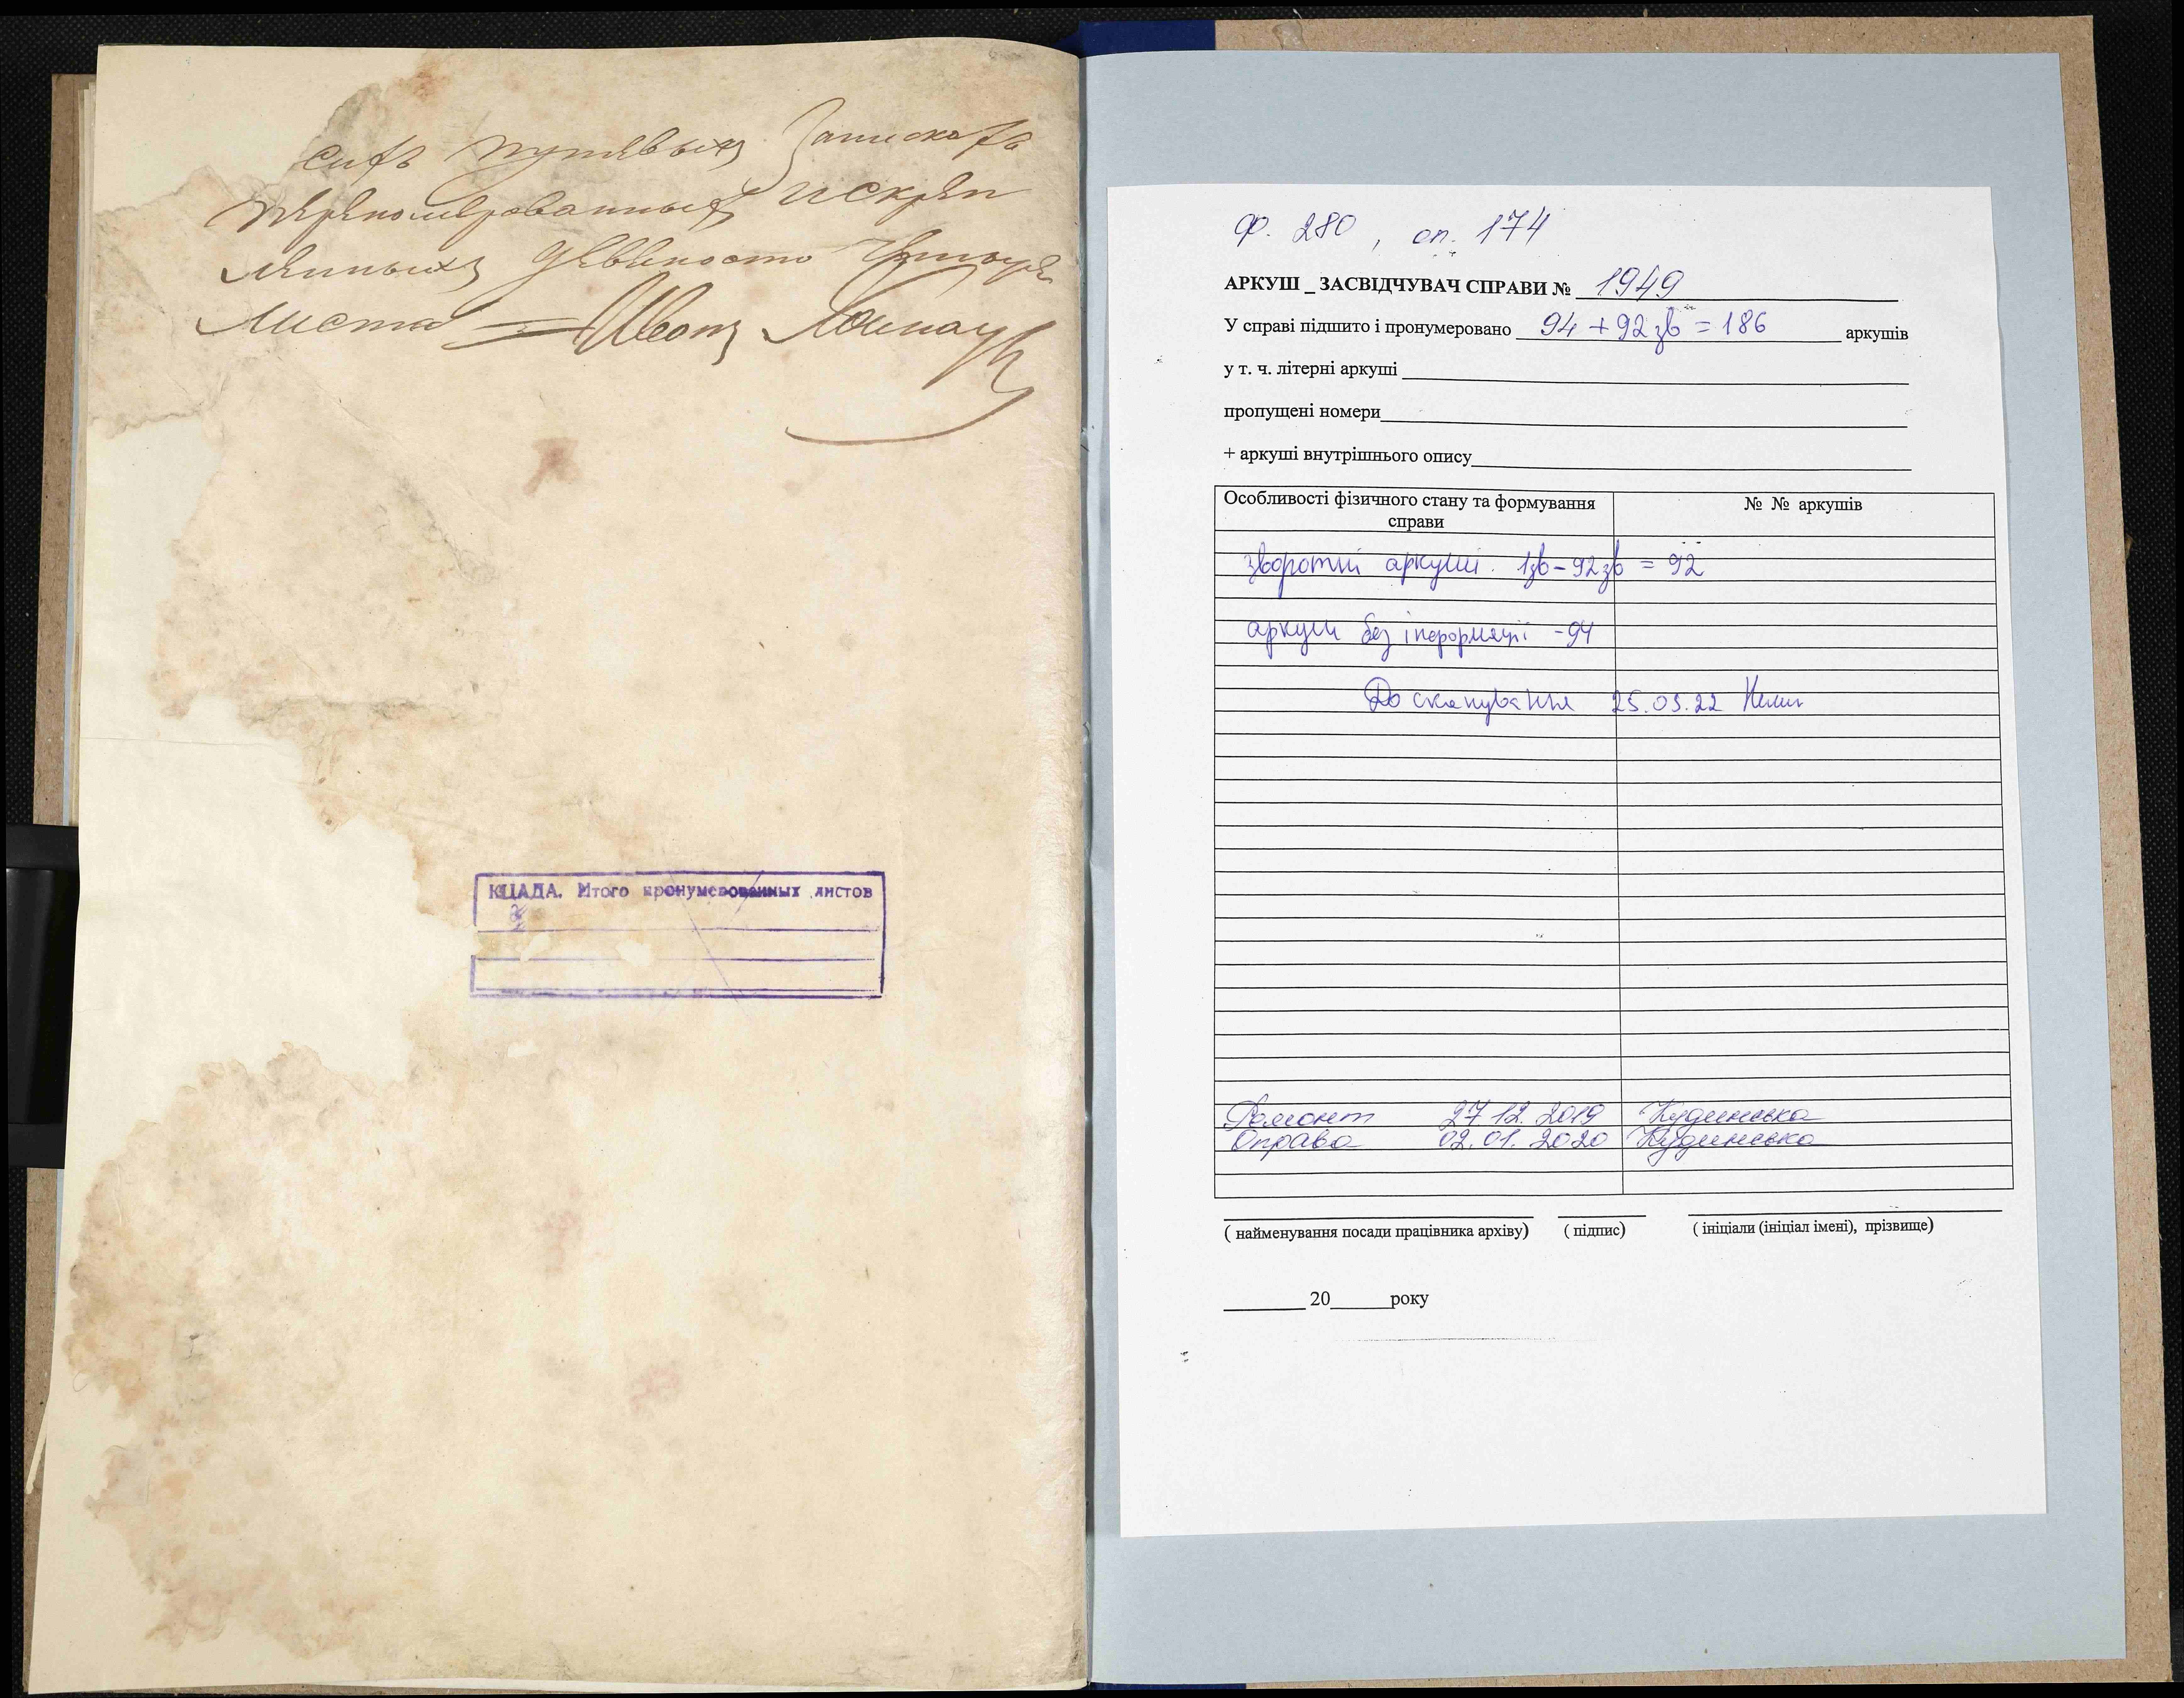 сихъ путевыхъ Запискахъ
перенумерованныхъ и скреп
ленныхъ девяносто четыре
Листа
КЦАДА. Итого пронумерованных листов
Ф. 280, оп. 174
АРКУШ _ ЗАСВІДЧУВАЧ СПРАВИ № 1949
У справі підшито і пронумеровано 94 + 92 зв = 186 аркушів
у т. ч. літерні аркуші
пропущені номери
+ аркуші внутрішнього опису
Особливості фізичного стану та формування справи
№ № аркушів
зворотні аркуші. 1зв – 92зв = 92
аркуш без інформації - 94
До сканування 25.03.22
Ремонт 27.12.2019 Кудинська
Оправа 02.01.2020 Кудинська
( найменування посади працівника архіву) ( підпис) ( ініціали (ініціал імені), прізвище)
20 року